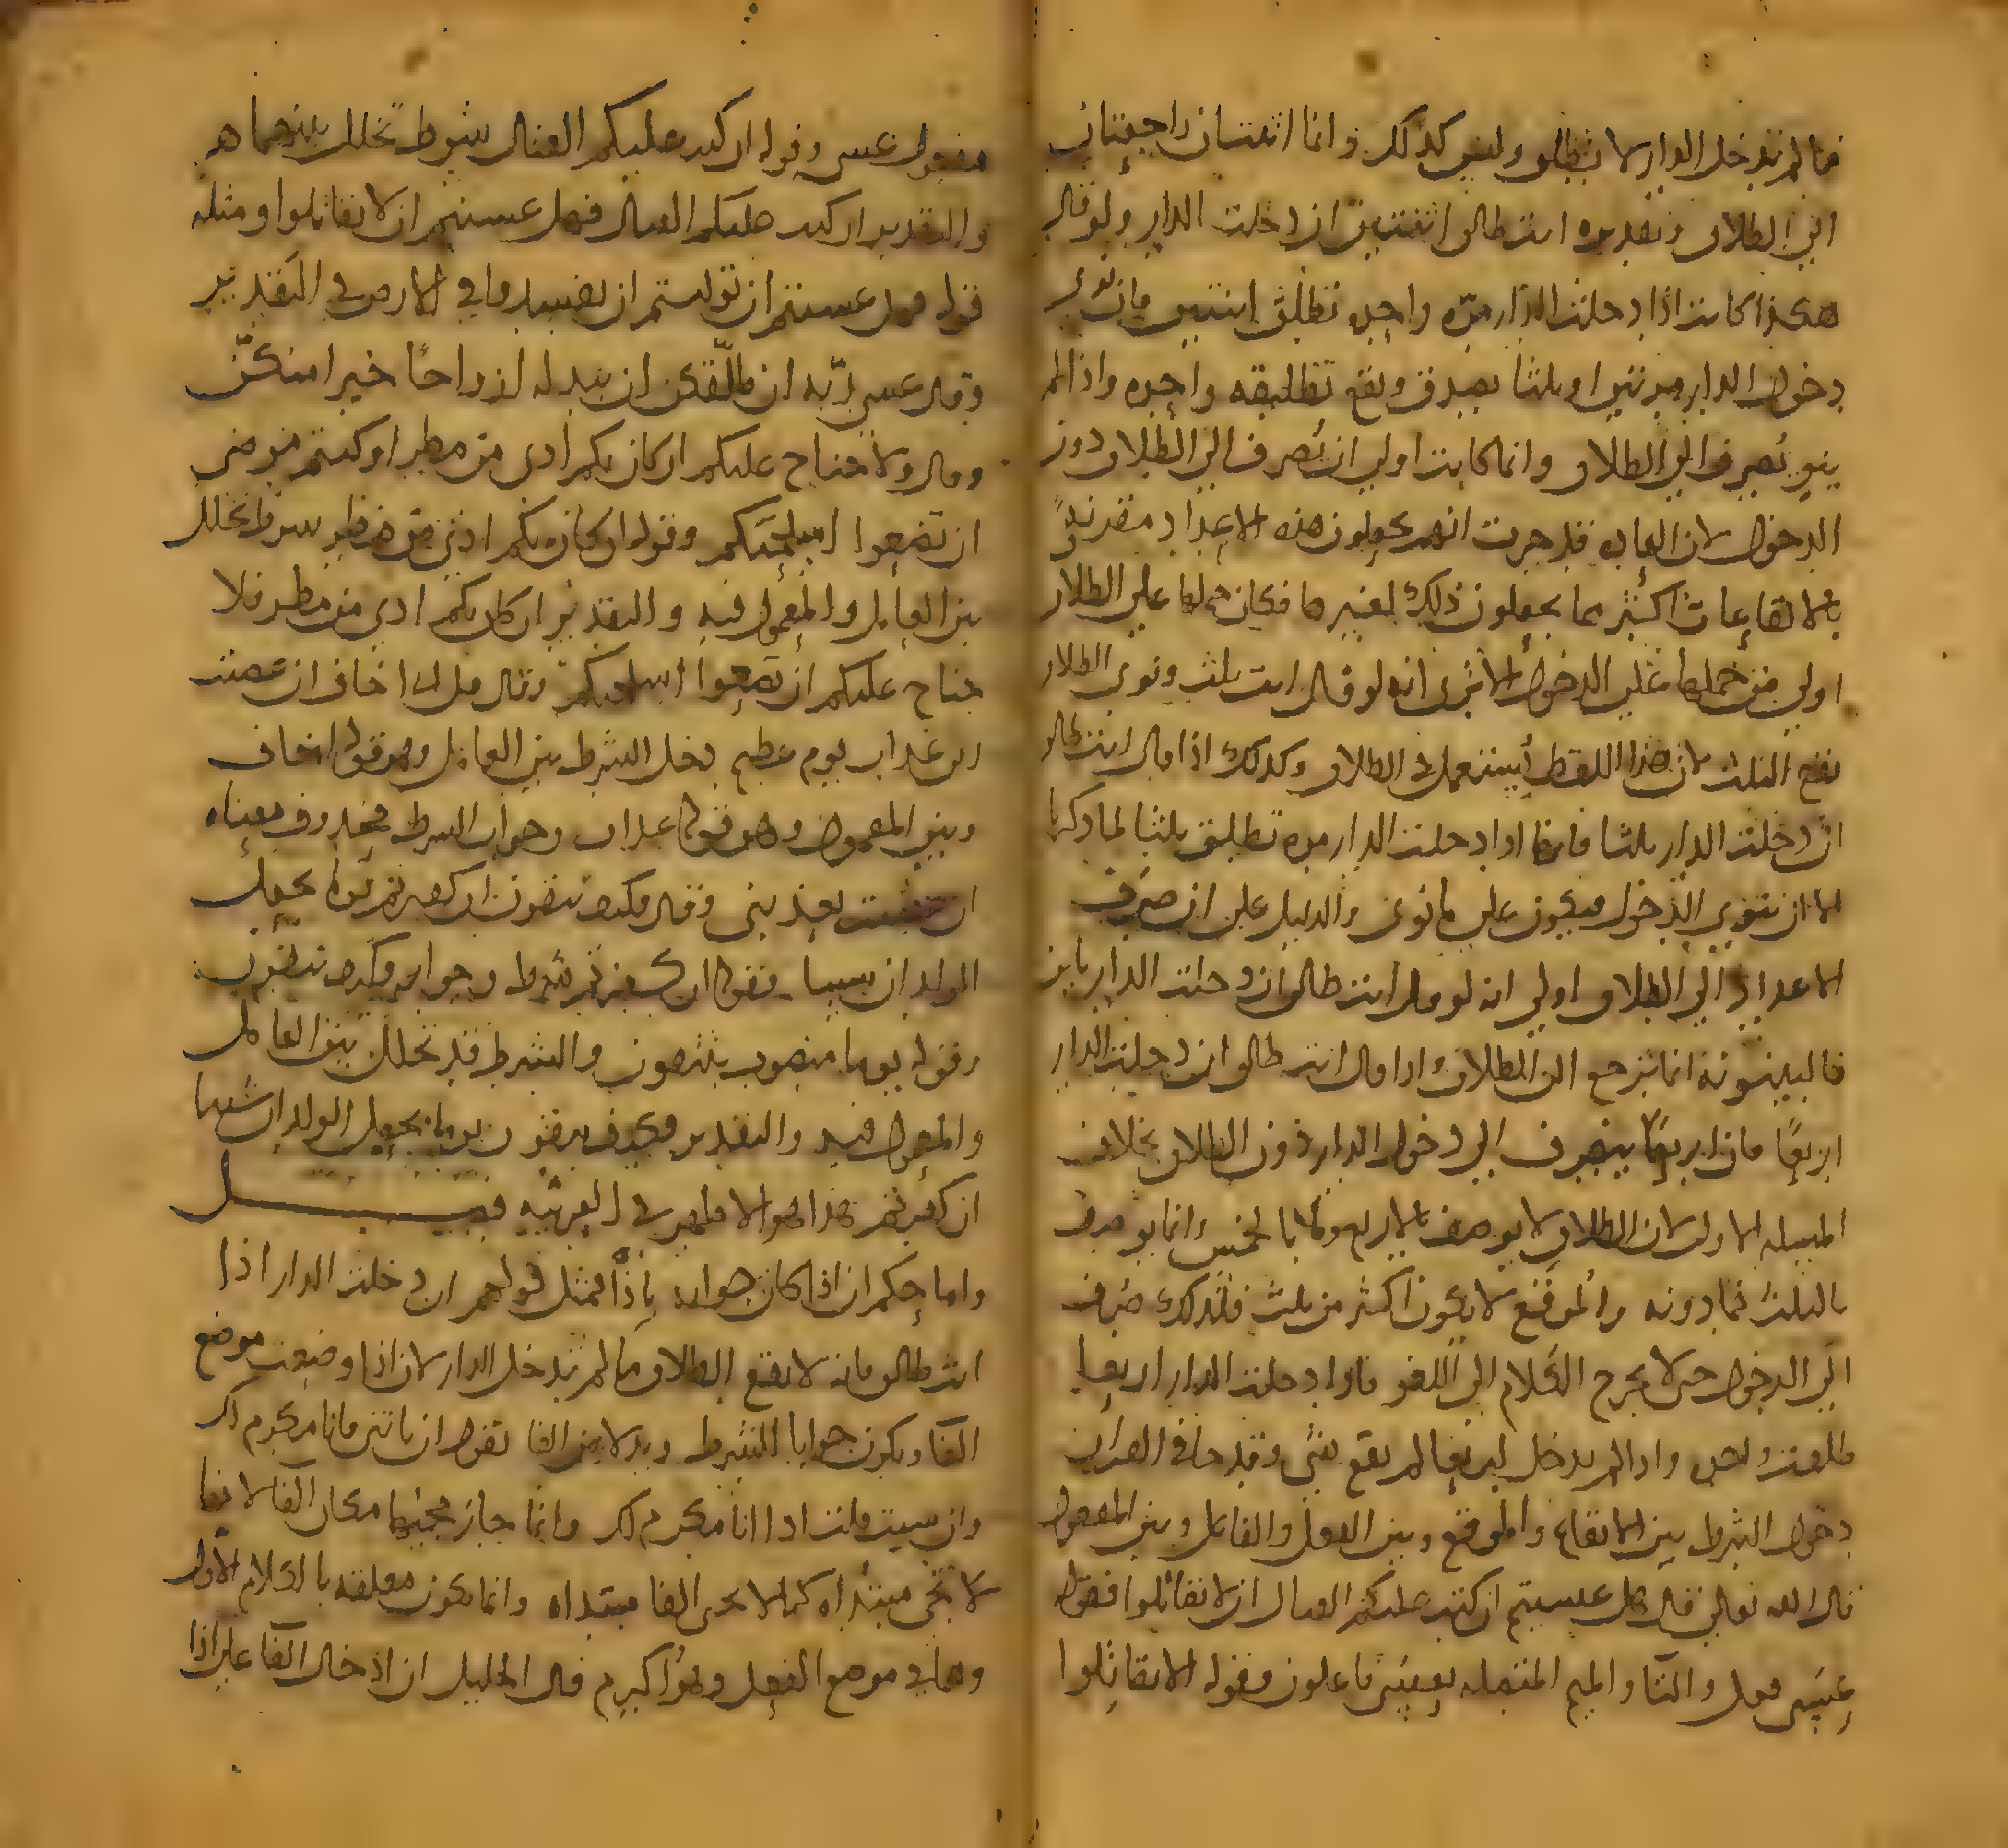 فما لم تدخل الدار لا تطلق وليس كذلك وانما اثنتان راجعتان
الى الطلاق وتقديره انت طالق اثنتين ان دخلت الدار ولو قال
هكذا كانت اذا دخلت الدار مرة واحده تطلق اثنتين فان نوى
دخول الدار مرتين او ثلثا يصدق ويقع تطليقه واحده واذا لم
ينو يصرف الى الطلاق وانما كانت اولى ان تصرف الى الطلاق دون
الدخول لان العاده قد جرت انهم يجعلون هذه الاعداد مقترنة
بالايقاعات اكثر مما يجعلون ذلك لغيرها فكان حملها على الطلاق
اولى من حملها على الدخول الا ترى انه لو قال انت ثلث ونوى الطلاق
يقع الثلث لان هذا اللفظ يستعمل في الطلاق وكذلك اذا قال انت طالق
ان دخلت الدار ثلثا فانها اذا دخلت الدار مره تطلق ثلثا لما ذكرنا
الا ان ينوي الدخول فيكون على ما نوى والدليل على ان صرف
الاعداد الى الطلاق اولى انه لو قال انت طالق ان دخلت الدار باين
فالبينونة انما ترجع الى الطلاق واذا قال انت طالق ان دخلت الدار
اربعا فان اربعا ينصرف الى دخول الدار دون الطلاق بخلاف
المسله الاولى لان الطلاق لا يوصف بالاربع ولا بالخمس انما يوصف
بالثلث فما دونه والموقع لا يكون اكثر من ثلث فلذلك صرف
الى الدخول حتى لا يخرج الكلام الى اللغو فاذا دخلت الدار اربعا
طلقت واحده واذا لم تدخل اربعا لم يقع شي وقد جا في القران
دخول الشرط بين الايقاع والموقع وبين الفعل والفاعل وبين المفعول
قال الله تعالى قال هل عسيتم ان كتب عليكم القتال ان لا تقاتلوا فقوله
عسى فعل والتا والميم المتصله بعسى فاعلون وقوله الا تقاتلوا
مفعول عسى وقوله ان كتب عليكم القتال شرط تخلل بينهما هو
والتقدير ان كتب عليكم القتال فهل عسيتم ان لا تقاتلوا ومثله
قوله فهل عسيتم ان توليتم ان تفسدوا في الارض في التقدير
وقال عسى ربه ان طلقكن ان يبدله ازواجا خيرا منكن
وقال ولا جناح عليكم ان كان بكم اذى من مطر او كنتم مرضى
ان تضعوا اسلحتكم وقوله ان كان بكم اذى من مطر شرط تخلل
بين العامل والمعمول فيه والتقدير ان كان بكم اذى من مطر فلا
جناح عليكم ان تضعوا اسلحتكم وقال قل اني اخاف ان عصيت
ربي عذاب يوم عظيم دخل الشرط بين العامل وهو قوله اخاف
وبين المعمول وهو قوله عذاب وجواب الشرط محذوف معناه
ان عصيت يعذبني وقال فكيف تتقون ان كفرتم يوما يجعل
الولدان شيبا فقوله ان كفرتم شرط وجوابه فكيف تتقون
وقوله يوما منصوب بتتقون والشرط قد تخلل بين العامل
والمعمول فيه والتقدير فكيف تتقون يوما يجعل الولدان شيبا
ان كفرتم هذا هو الاظهر في العربيه فصل
واما حكم ان اذا كان جوابه باذا فمثل قولهم ان دخلت الدار اذا
انت طالق فانه لا يقع الطلاق ما لم تدخل الدار لان اذا وضعت موضع
الفا ويكون جوابا للشرط وبدلا من الفا تقول ان تاتني فانا مكرم لك
وان شيت قلت اذا انا مكرم لك وانما جاز مجيها مكان الفا لانها
لا تجى مبتداه كما لا تجى الفا مبتداه وانما تكون معلقه بالكلام الاول
وهما في موضع الفعل وهو اكرم قال الخليل ان ادخال الفا على اذا